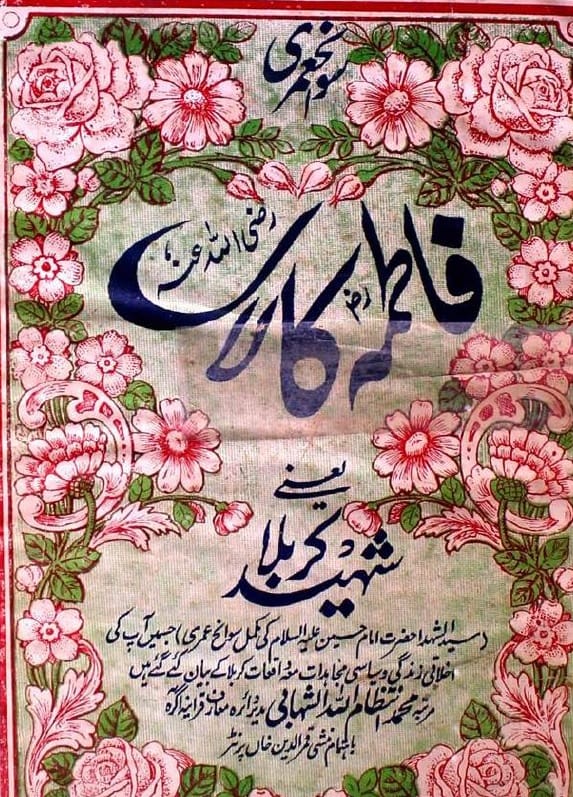 سوانحعمری
فاطمہ رض کا لال رضی اللہ عنہ
یعنے
شہید کربلا
(سید الشہدا حضرت امام حسین علیہ السلام کی مکمل سوانح عمری) جسمیں آپ کی
اخلاقی زندگی و سیاسی مجاہدات معہ واقعات کربلا کے بیان کئے گئے ہیں
مرتبہ محمد انتظام اللہ الشہابی مدیر دائرہ معارف قرانیہ آگرہ
باہتمام منشی قمر الدین خاں پرنٹر